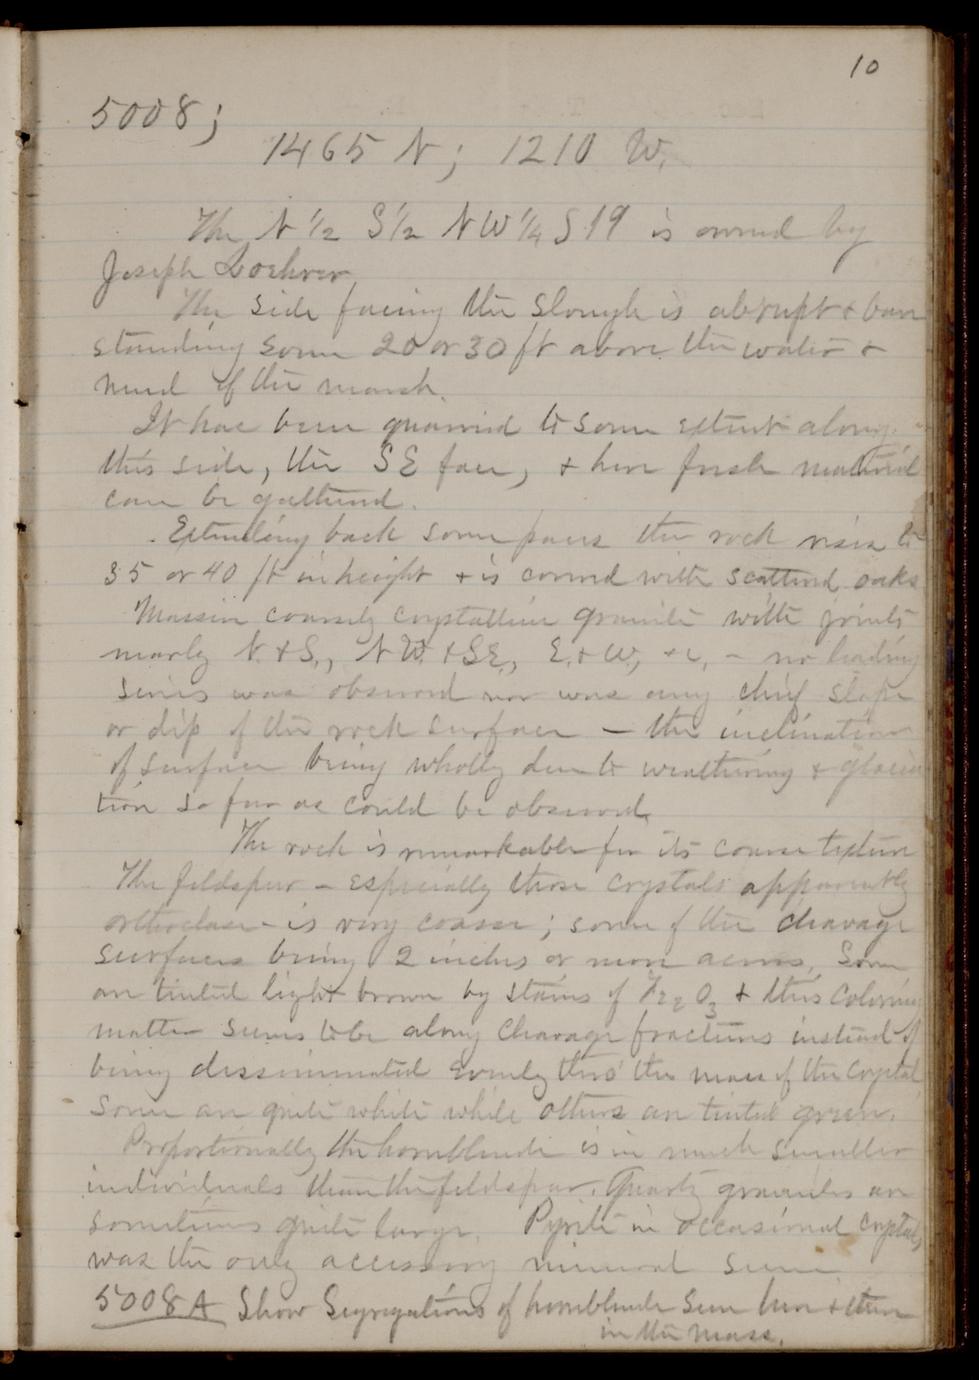 10
5008;
1465 N; 1210 W.
The N 1/2 S 1/2 NW 1/4 S 19 is owned by
Joseph
The side facing the slough is abrupt & bare
standing some 20 or 30 ft above the water &
mud of the marsh.
It has been quarried to some extent along
this side, the SE face, & here fresh material
can be gathered.
Extending back some paces the rock rises to
35 or 40 ft in height & is covered with scattered oaks
Massive coarsely crystalline granite with joints
nearly N. & S., NW. & SE., E. & W., &c, – no leading
series was observed nor was any chief slope
or dip of the rock surface – the inclination
of surface being wholly due to weathering & glacia
tion so far as could be observed.
The rock is remarkable for its coarse texture
The feldspar – especially those crystals apparently
orthoclase – is very coarse; some of the cleavage
surfaces being 2 inches or more across. Some
are tinted light brown by stains of Fe2O3 & this coloring
matter seems to be along cleavage fractures instead of
being disseminated evenly thro' the mass of the crystal
Some are quite white while others are tinted green.
Proportionally the hornblende is in much smaller
individuals than the feldspar. Quartz granules are
sometimes quite large. Pyrite in occasional crystals
was the only accessory mineral seen
5008A Show segregations of hornblende seen here & there
in the mass.